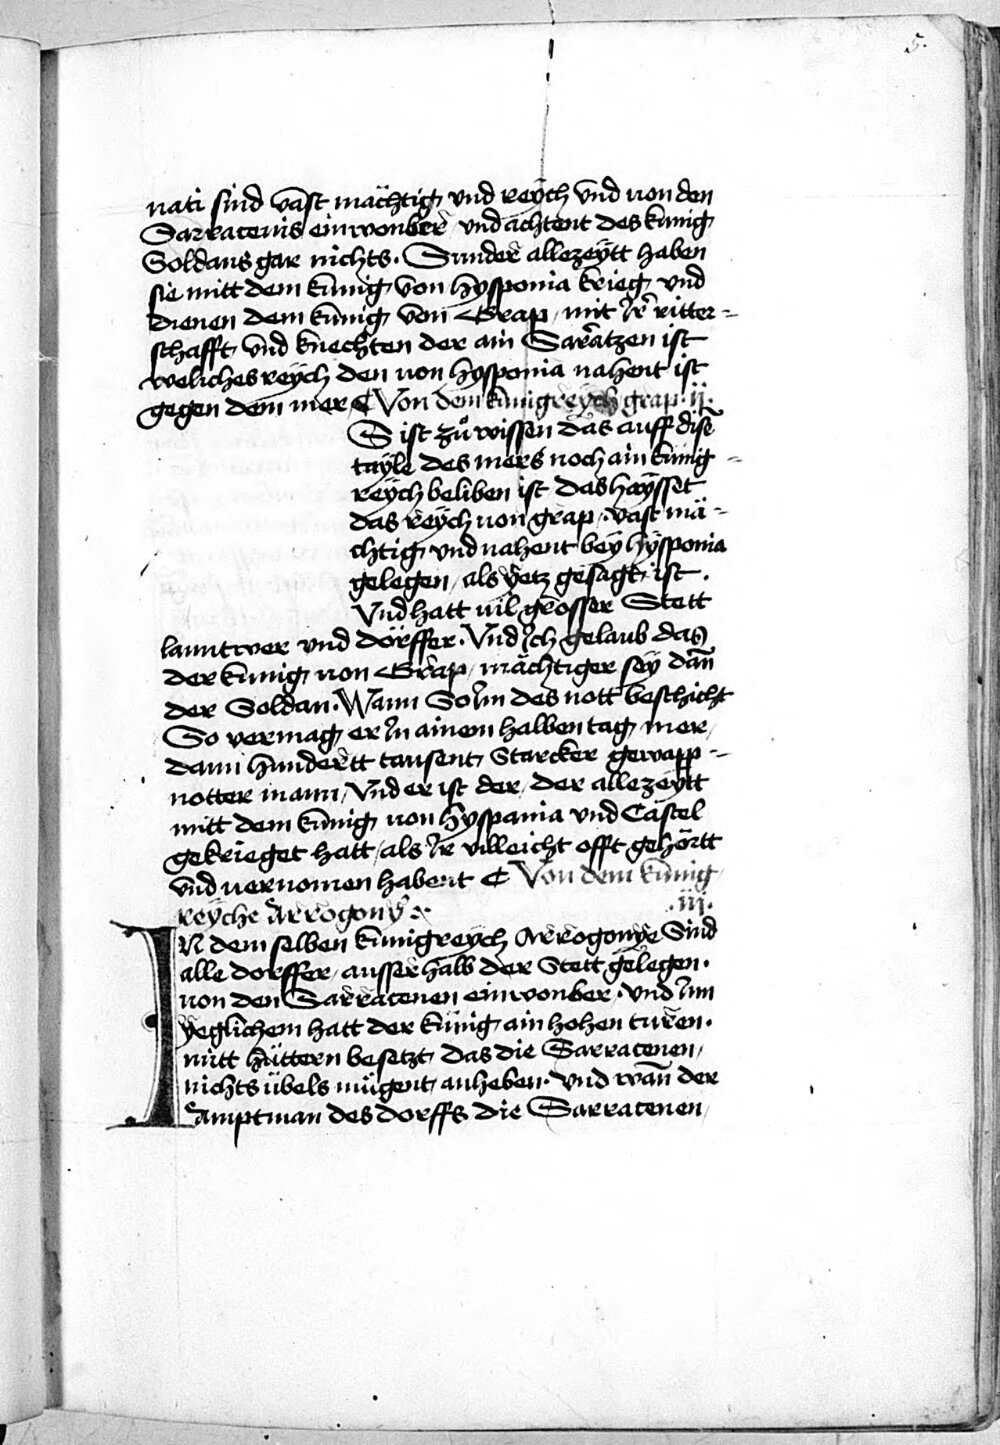 5.
nati sind vast mächtig und reÿch vnd von den
Sarracenis einwonber vnd achtent des kunig
Soldans gar nichts. Sunder allezeÿtt haben
sie mitt dem kunig von hÿsponia krieg und
dienen dem kunig vom Grap, mit Ir ritter=
schafft vnd knechten der ain Saratzen ist
weliches reÿch den von hÿsponia nahent ist
gegen dem mer ¶ Von dem kunigreÿch grap .ij.
S ist zů wissen das auff dise
taÿle des mers noch ain kunig=
reÿch beliben ist das haÿsset
das reÿch von grap, vast mä=
chtig und nahent beÿ hÿsponia
gelegen, als ÿetz gesagt ist.
Vnd hatt vil grosser Stett
lanntwer und dörffer. Vnd Ich gelaub das
der kunig von Grap, mächtiger seÿ dañ
der Soldan. Wann So Im des nott beschicht
So vermag er In ainem halben tag mer
dann hundertt tausent Starcker gewapp=
notter mann, Vnd er ist der, der allezeÿtt
mitt dem kunig von hÿspania vnd Castel
gekrieget hatt, als Ir villeicht offt gehörtt
vnd vernomen habent ¶ Von dem kunig
reÿche Arrogonÿ .iij.
IN dem selben kunigreÿch Arrogonÿe Sind
alle dorffer, ausserhalb der Stett gelegen.
von den Sarracenen einwonber. vnd Inn
ÿeglichem hatt der kunig ain hohen turen.
mitt hüttern besetzt das die Sarracenen,
nichts übels mügent anheben. Vnd wañ der
Amptman des dorffs die Sarracenen,